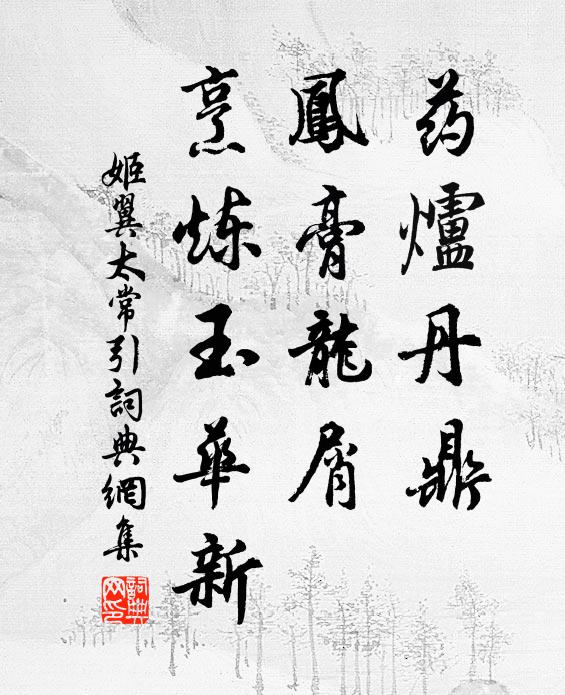 药爐丹鼎
鳳膏龍屑
烹炼玉華新
姬翼太常引詞典網集
詞典
网印